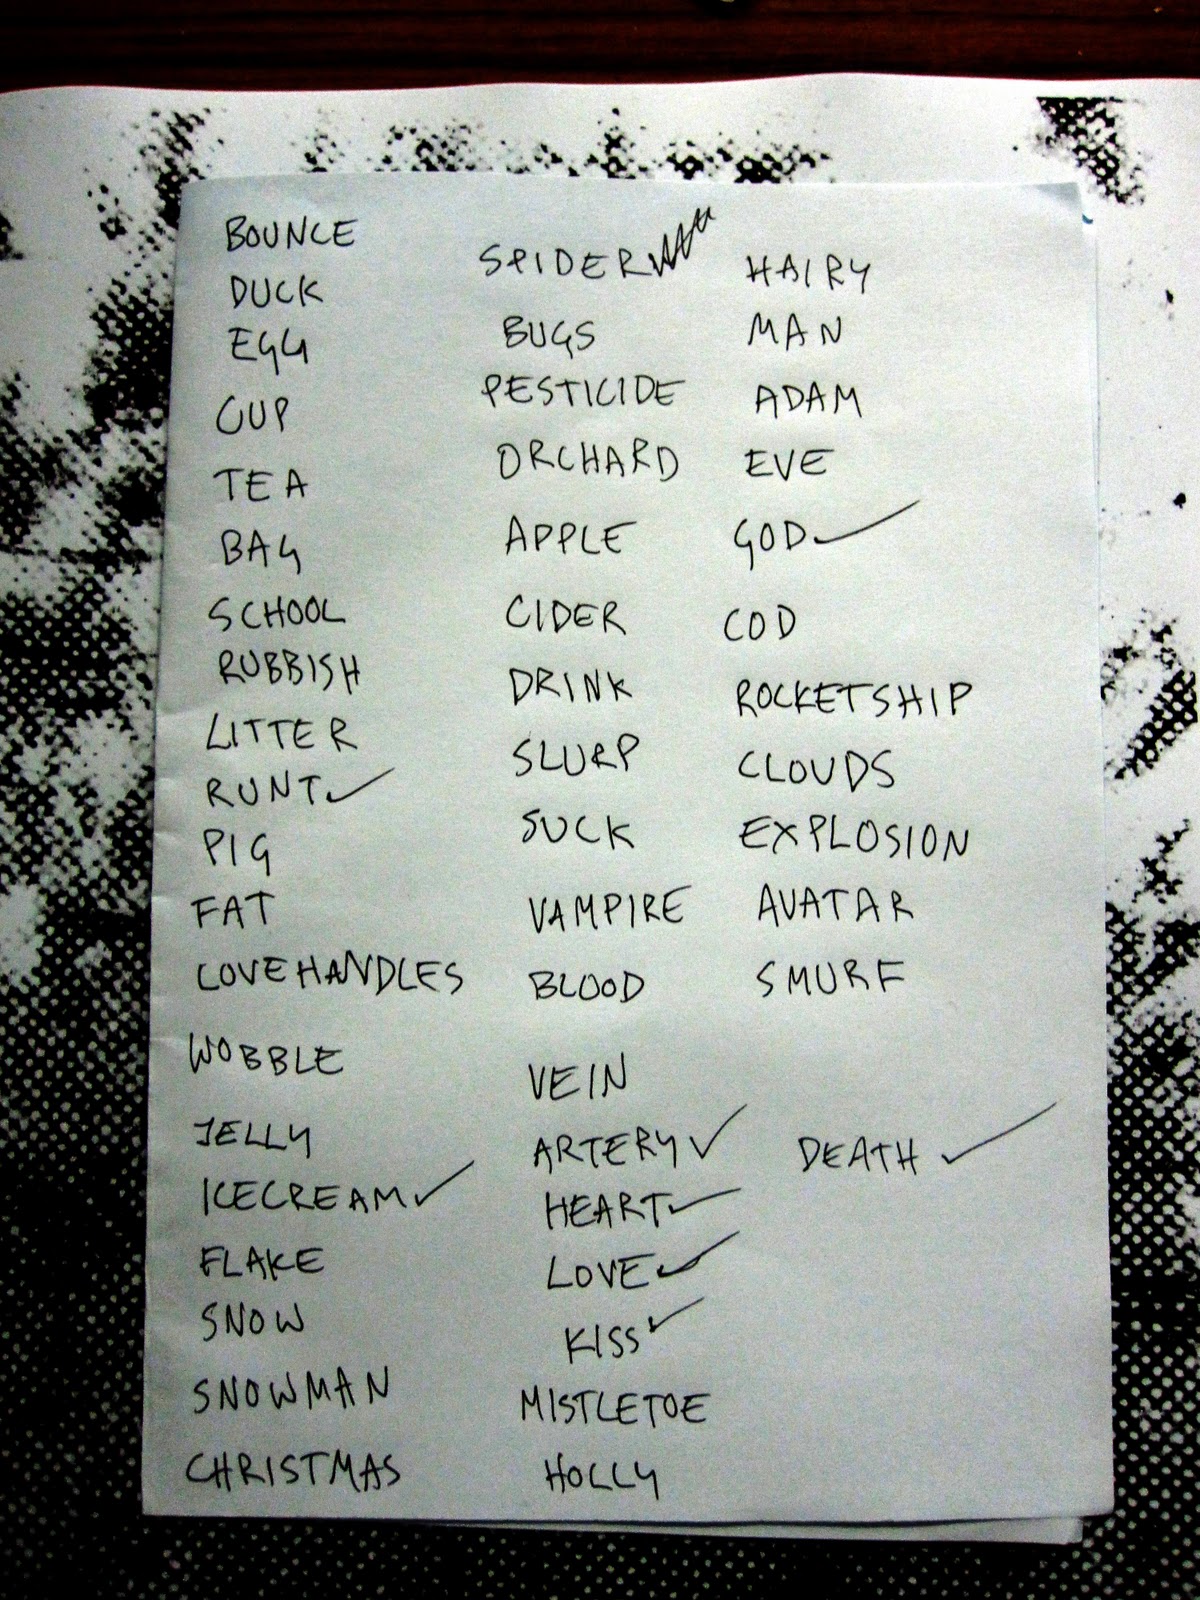 BOUNCE
DUCK
EGG
CUP
TEA
BAG
SCHOOL
RUBBISH
LITTER
RUNT ✓
PIG
FAT
LOVEHANDLES
WOBBLE
JELLY
ICECREAM ✓
FLAKE
SNOW
SNOWMAN
CHRISTMAS
SPIDER
BUGS
PESTICIDE
ORCHARD
APPLE
CIDER
DRINK
SLURP
SUCK
VAMPIRE
BLOOD
VEIN
ARTERY ✓
HEART ✓
LOVE ✓
KISS ✓
MISTLETOE
HOLLY
HAIRY
MAN
ADAM
EVE
GOD ✓
COD
ROCKETSHIP
CLOUDS
EXPLOSION
AVATAR
SMURF
DEATH ✓